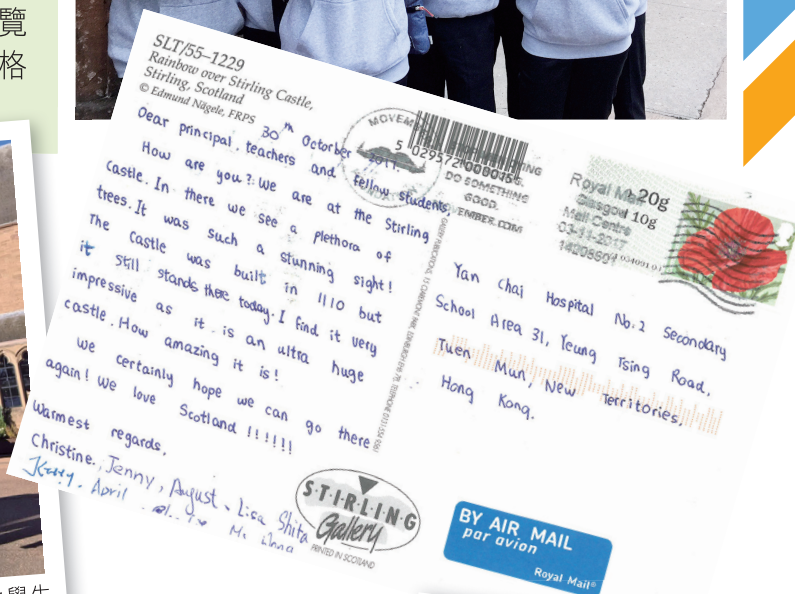 覽
格
SLT/55–1229
Rainbow over Stirling Castle,
Stirling, Scotland
© Edmund Nägele, FRPS
30th Octorber 2017.
Dear principal, teachers and fellow students,
How are you? We are at the Stirling
castle. In there we see a plethora of
trees. It was such a stunning sight!
The castle was built in 1110 but
it still stands there today. I find it very
impressive as it is an ultra huge
castle. How amazing it is!
We certainly hope we can go there
again! We love Scotland !!!!!!
Warmest regards,
Christine, Jenny, August, Lisa Shita
Kerry, April
MOVEM
DO SOMETHING
GOOD.
VEMBER.COM
5 029572
Royal Ma 20g
Glasgow 10g
Mail Centre
03-11-2017
Yan Chai Hospital No.2 Secondary
School Area 31, Yeung Tsing Road,
Tuen Mun, New Territories,
Hong Kong.
STIRLING
Gallery
PRINTED IN SCOTLAND
BY AIR MAIL
par avion
Royal Mail®
學生